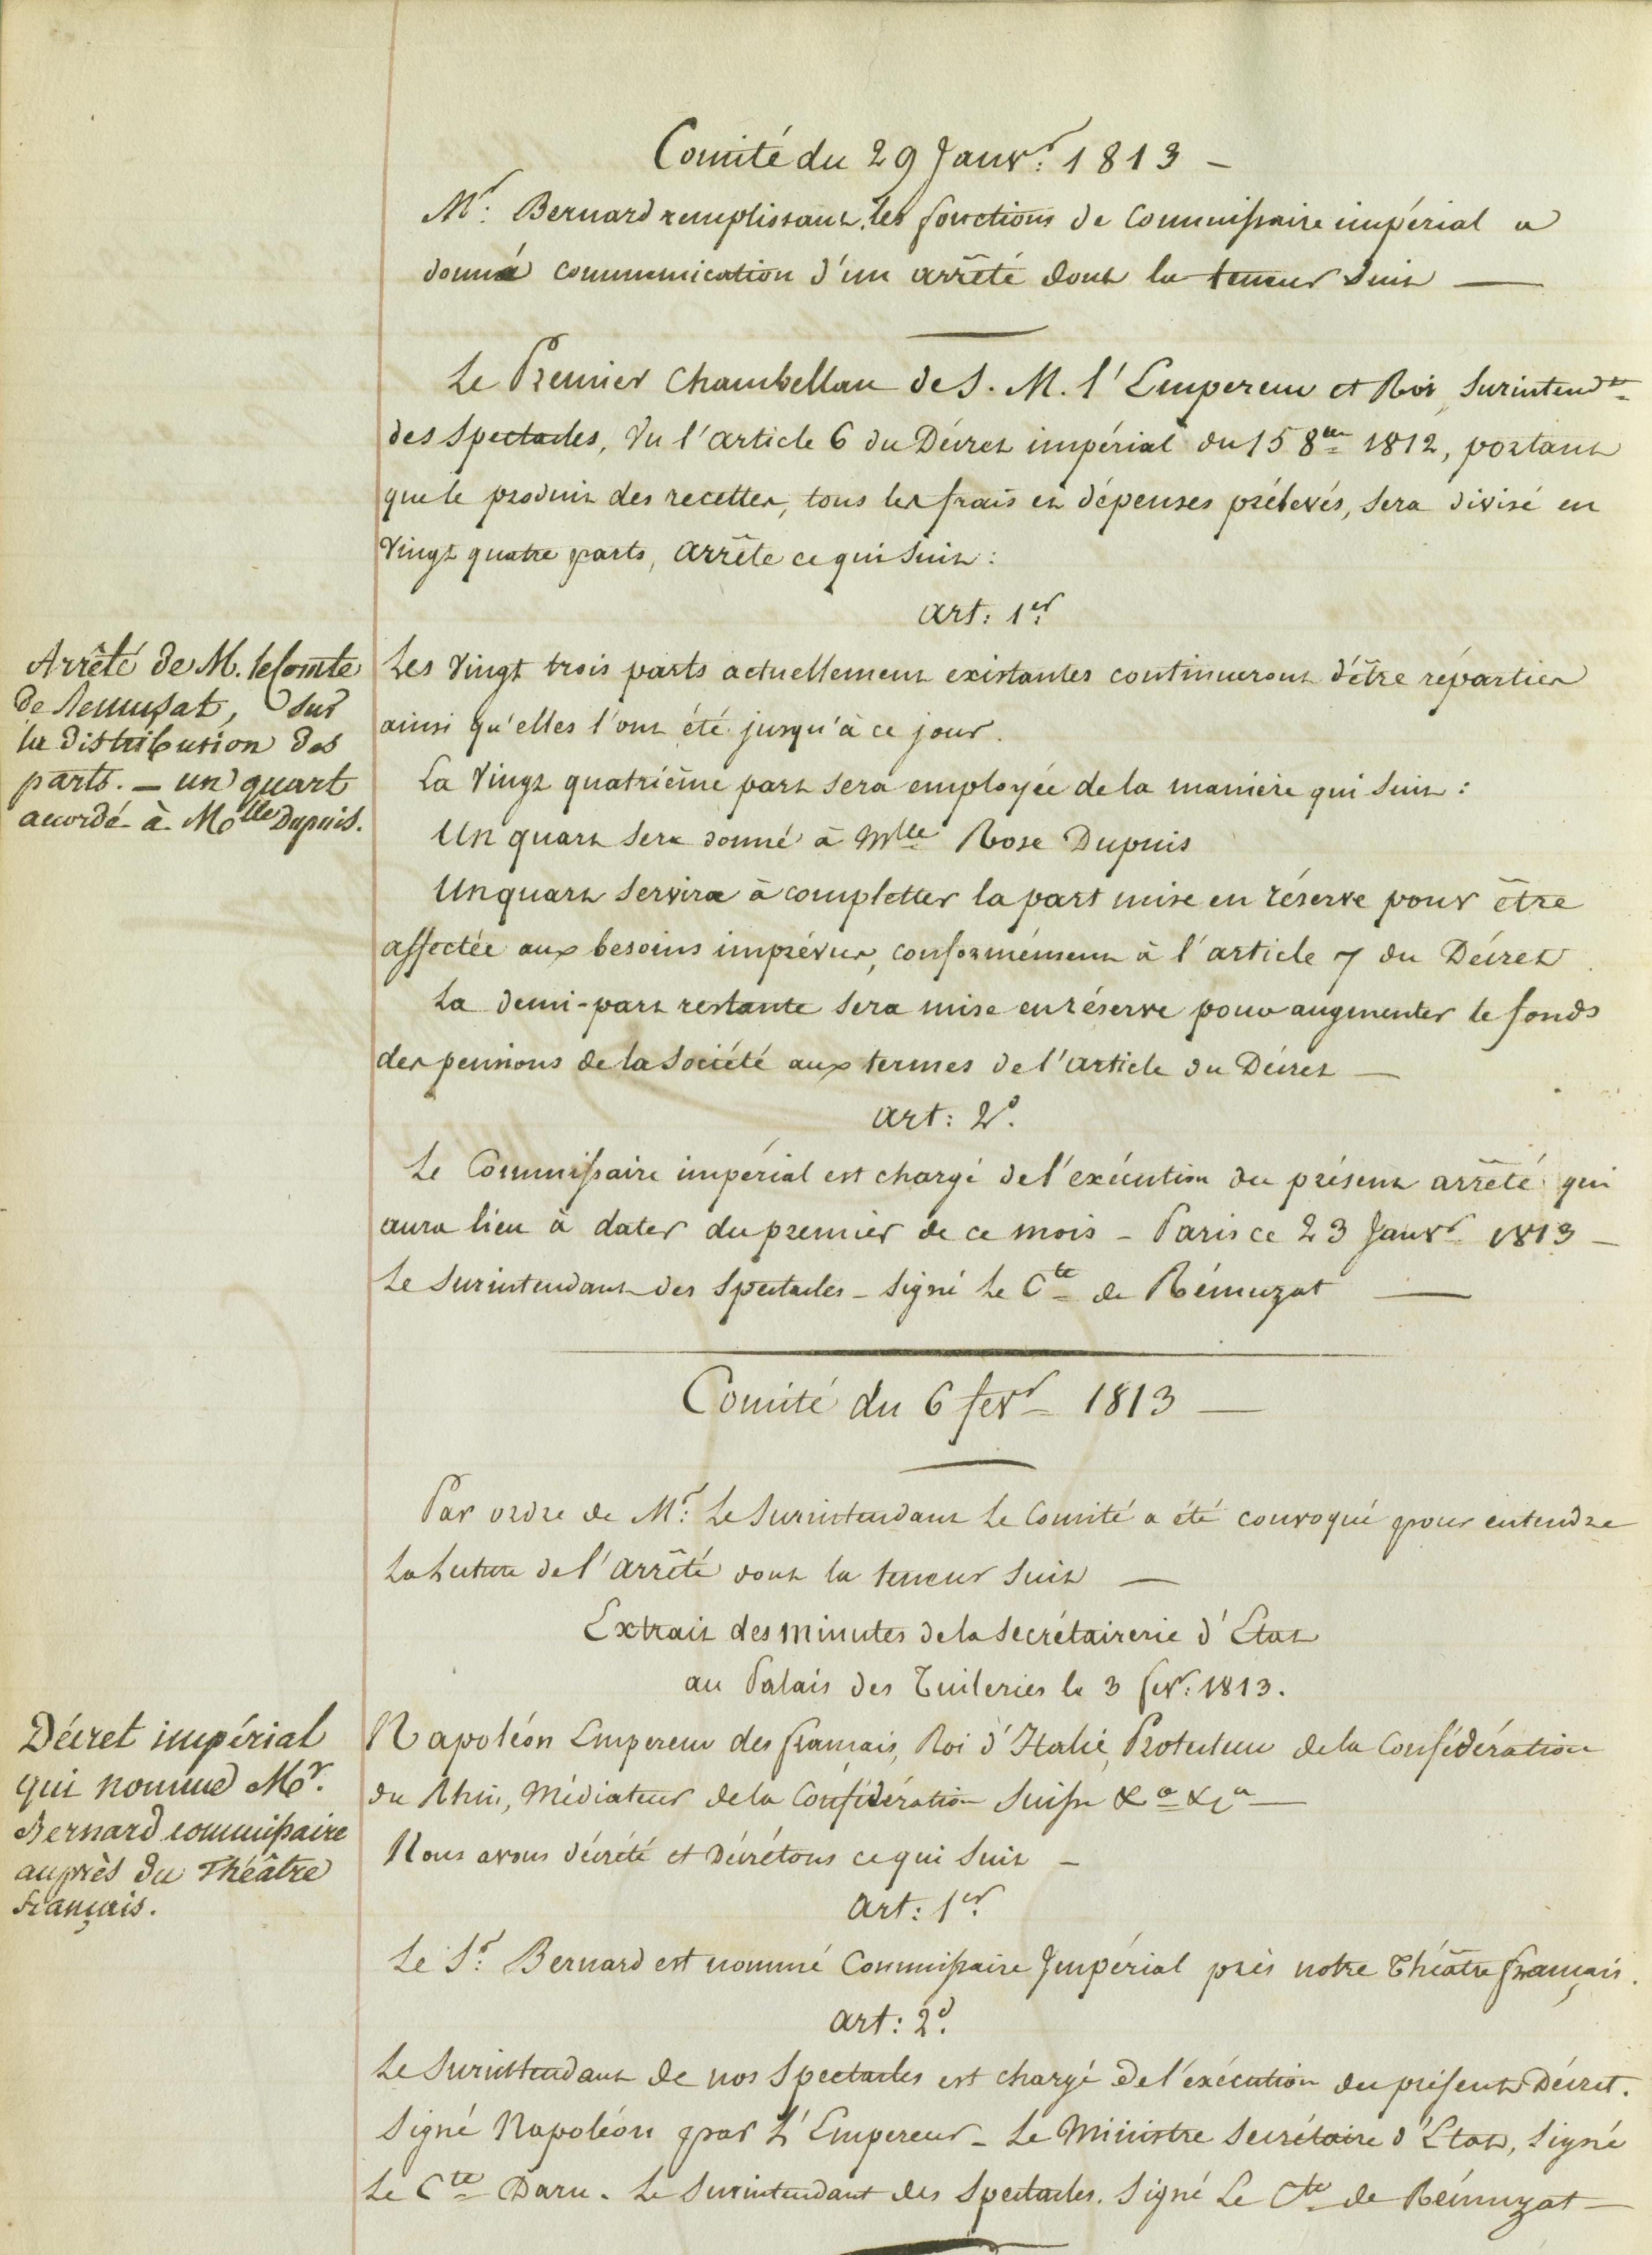 Comité du 29 Janvr. 1813 —
Mr. Bernard remplissant les fonctions de Commissaire impérial a
donné communication d'un arrêté dont la teneur suit —
Le Premier Chambellan de S. M. l'Empereur et Roi, Surintendt
des Spectacles, Vu l'article 6 du Décret impérial du 15 8bre 1812, portant
que le produit des recettes, tous les frais et dépenses prélevés, sera divisé en
Vingt quatre parts, arrête ce qui suit :
art: 1er
Arrêté de M. le Comte
de Remusat, sur
la distribution des
parts. — un quart
accordé à Mlle Dupuis.
Les Vingt trois parts actuellement existantes continueront d'être réparties
ainsi qu'elles l'ont été jusqu'à ce jour.
La Vingt quatrième part sera employée de la manière qui suit :
Un quart sera donné à Mlle Rose Dupuis
Un quart servira à completter la part mise en réserve pour être
affectée aux besoins imprévus, conformément à l'article 7 du Décret
La demi-part restante sera mise en réserve pour augmenter le fonds
des pensions de la Société aux termes de l'article du Décret —
art: 2d.
Le Commissaire impérial est chargé de l'exécution du présent arrêté qui
aura lieu à dater du premier de ce mois - Paris ce 23 Janvr 1813 —
Le Surintendant des Spectacles - signé le Cte de Rémuzat —
Comité du 6 fevr 1813 —
Par ordre de Mr. Le Surintendant Le Comité a été convoqué pour entendre
La Lecture de l'arrêté dont la teneur suit —
Extrait des minutes de la Secrétairerie d'Etat
au Palais des Tuileries le 3 fevr: 1813.
Décret impérial
qui nomme Mr.
Bernard commissaire
auprès du Théâtre
français.
Napoléon Empereur des français, Roi d'Italie, Protecteur de la Confédération
du Rhin, Médiateur de la Confédération Suisse &a &ca —
Nous avons décrété et Décrétons ce qui suit —
Art: 1er
Le Sr. Bernard est nommé Commissaire Impérial près notre Théâtre français.
art: 2d.
Le Surintendant de nos Spectacles est chargé de l'exécution du présent Décret.
signé Napoléon par L'Empereur - Le Ministre Secrétaire d'Etat, signé
Le Cte Daru - Le Surintendant des Spectacles. signé Le Cte de Rémuzat —